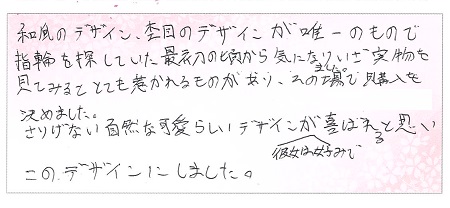 和風のデザイン、杢目のデザインが唯一のもので
指輪を探していた最初の頃から気になりいざ実物を
見てみるととても惹かれるものがありまして、その場で購入を
決めました。
さりげない自然な可愛らしいデザインが喜ばれると思い
彼女は好みで
このデザインにしました。